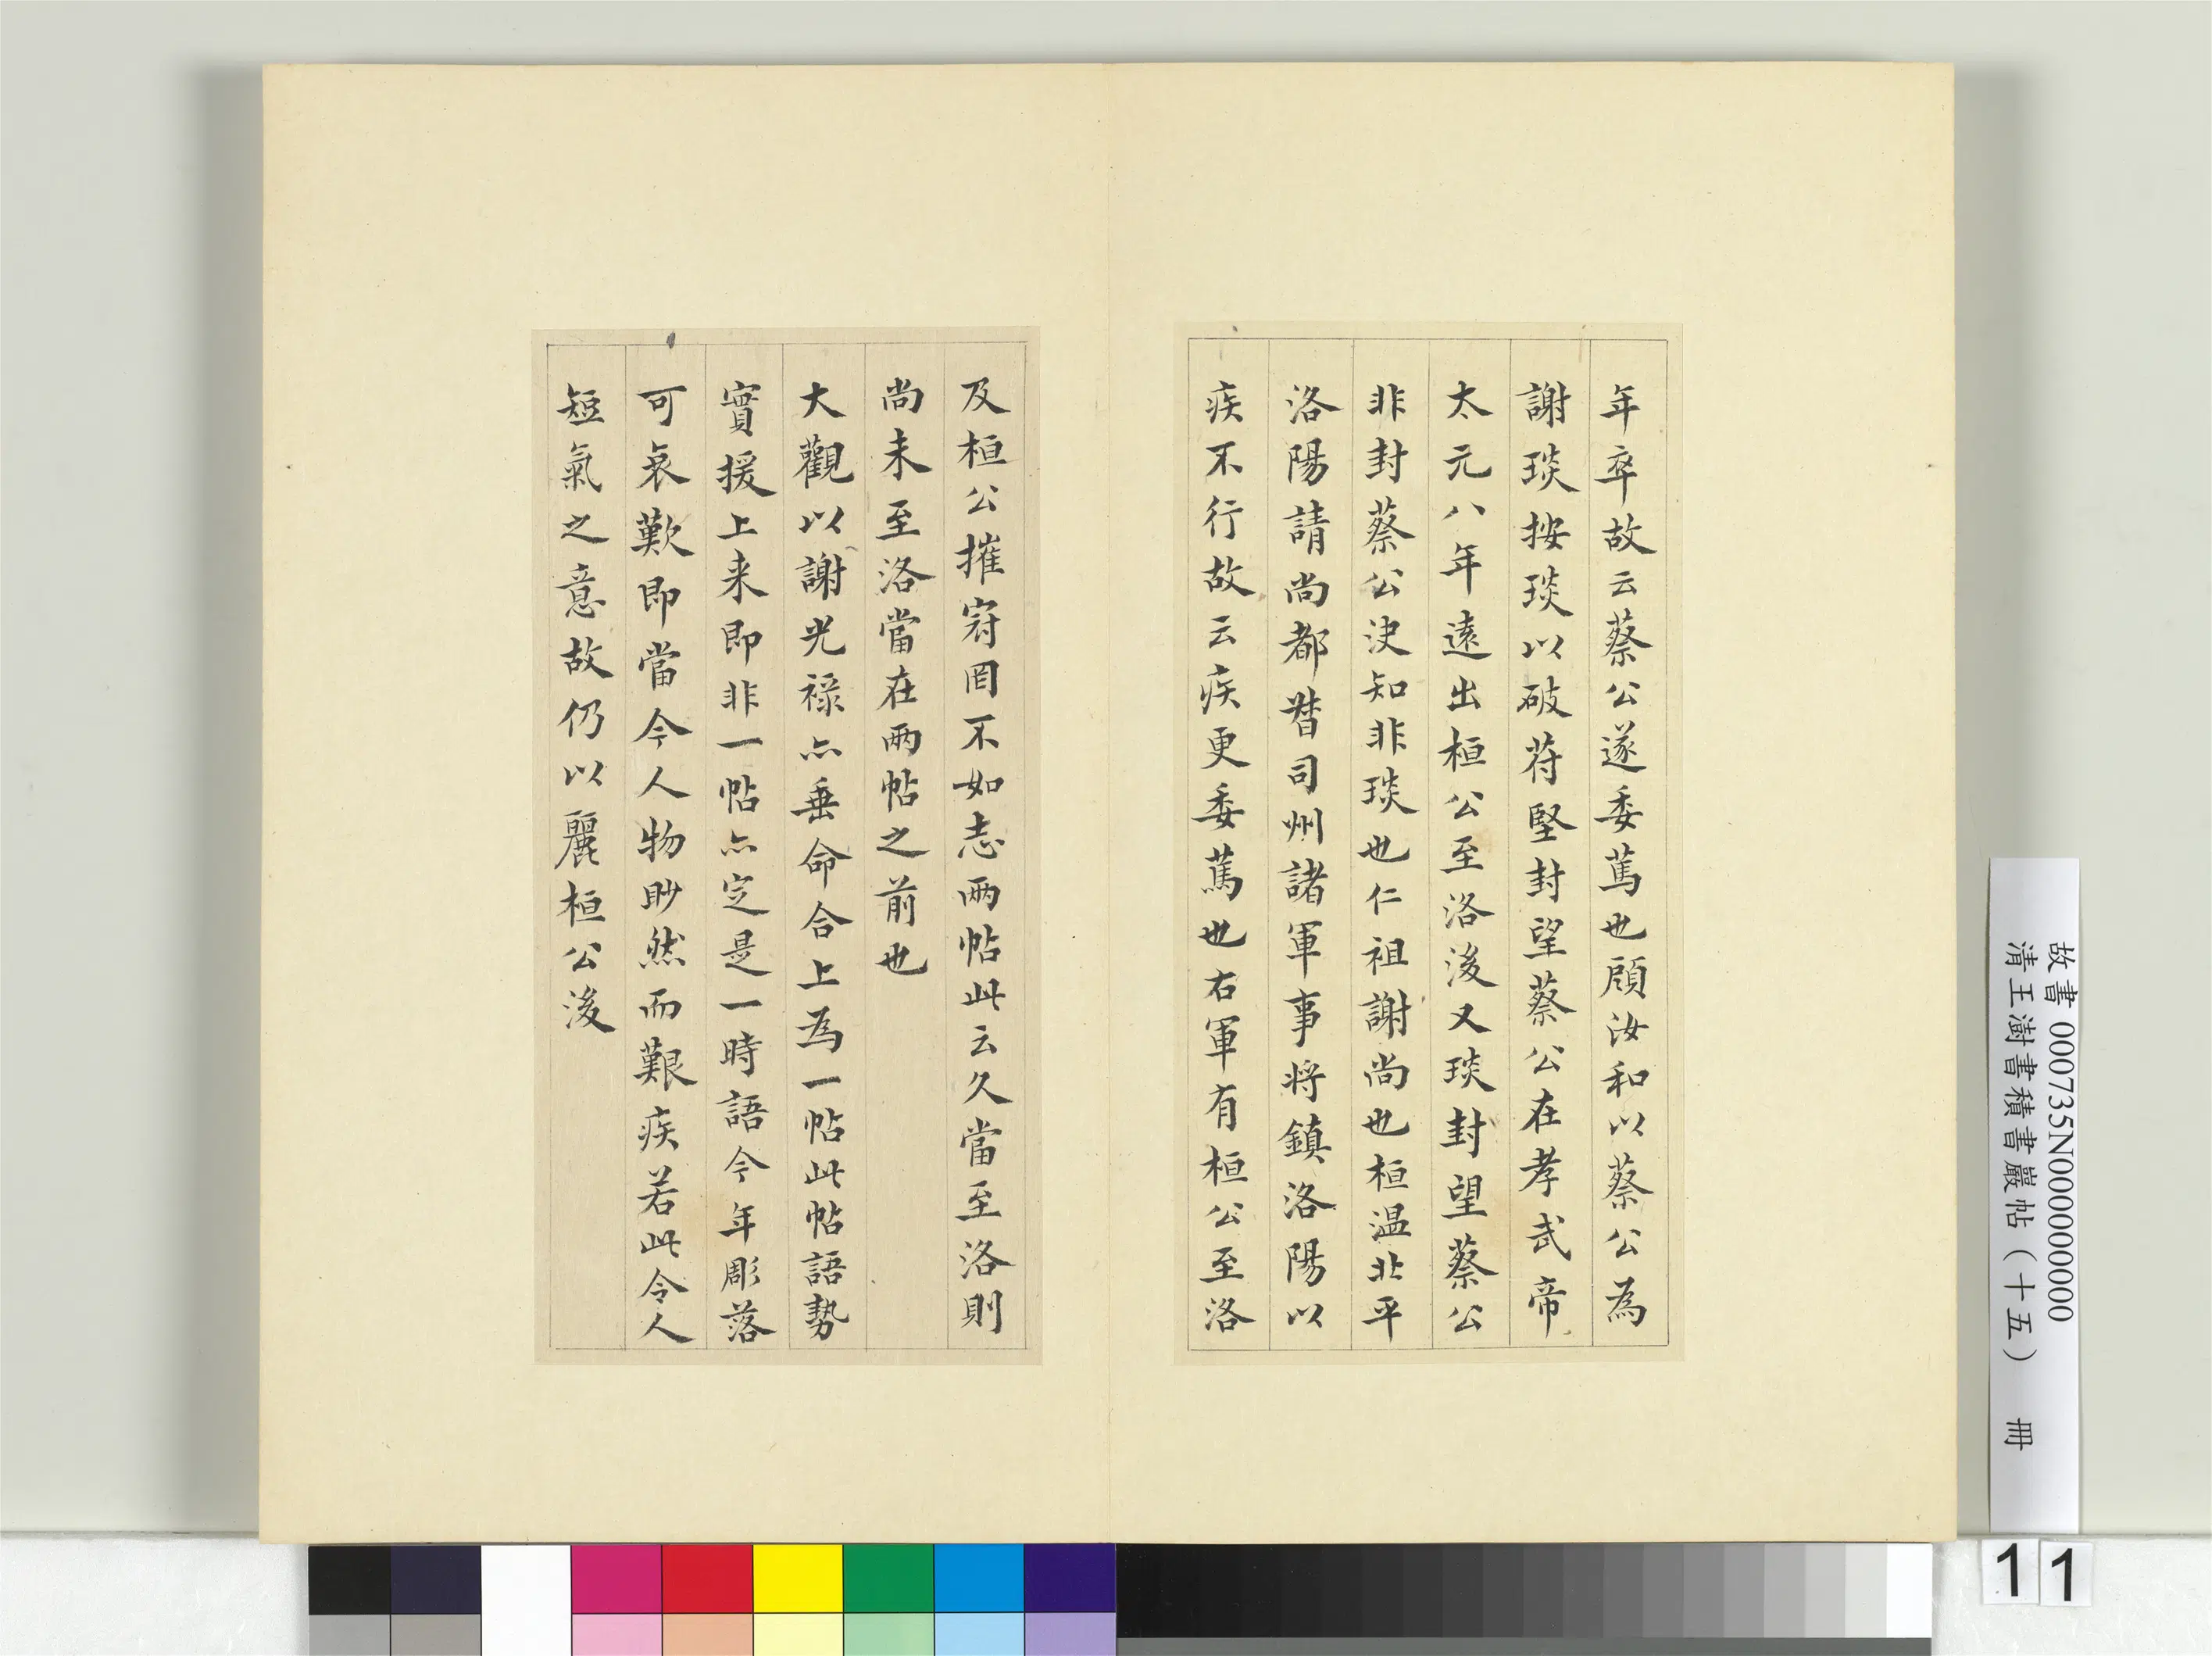 年卒故云蔡公遂委篤也頋汝和以蔡公為
謝琰按琰以破苻堅封望蔡公在孝武帝
太元八年遠出桓公至洛後又琰封望蔡公
非封蔡公決知非琰也仁祖謝尚也桓温北平
洛陽請尚都督司州諸軍事将鎮洛陽以
疾不行故云疾更委篤也右軍有桓公至洛
及桓公摧㓂罔不如志两帖此云久當至洛則
尚未至洛當在两帖之前也
大觀以謝光禄亦垂命合上為一帖此帖語勢
實援上来即非一帖亦定是一時語今年彫落
可哀歎即當今人物眇然而艱疾若此令人
短氣之意故仍以麗桓公後
故書 000735N000000000
清王澍書積書巖帖（十五） 冊
11